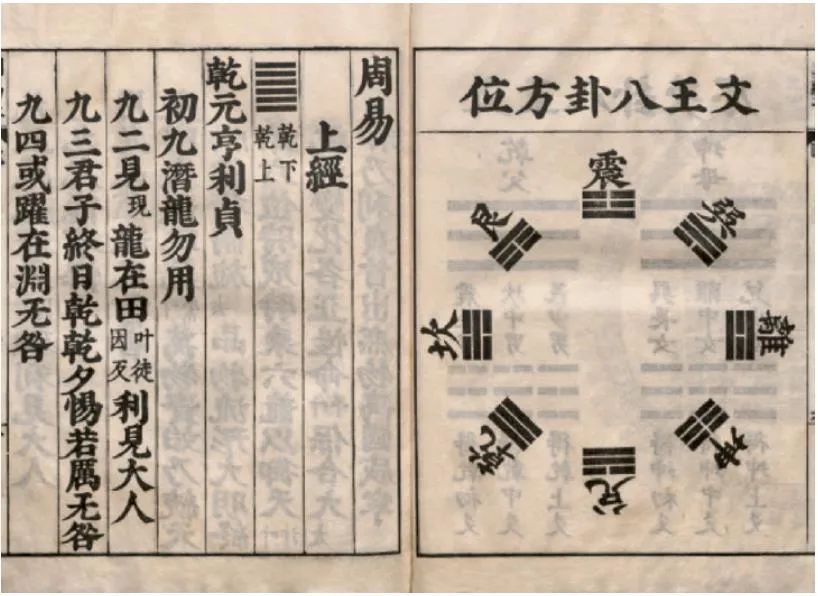 文王八卦方位
震
巽
離
坤
兌
乾
坎
艮
周易
上經
乾下
乾上
乾元亨利貞
初九潛龍勿用
九二見現龍在田叶徒因反利見大人
九三君子終日乾乾夕惕若厲无咎
九四或躍在淵无咎